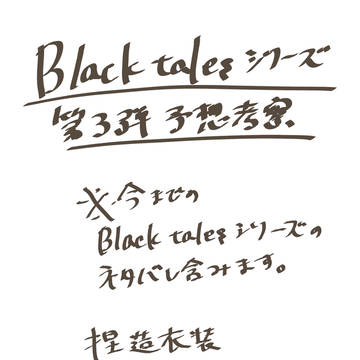 Black tales シリーズ
第3弾 予想考察
※今までの
Black talesシリーズの
ネタバレ含みます。
捏造衣装